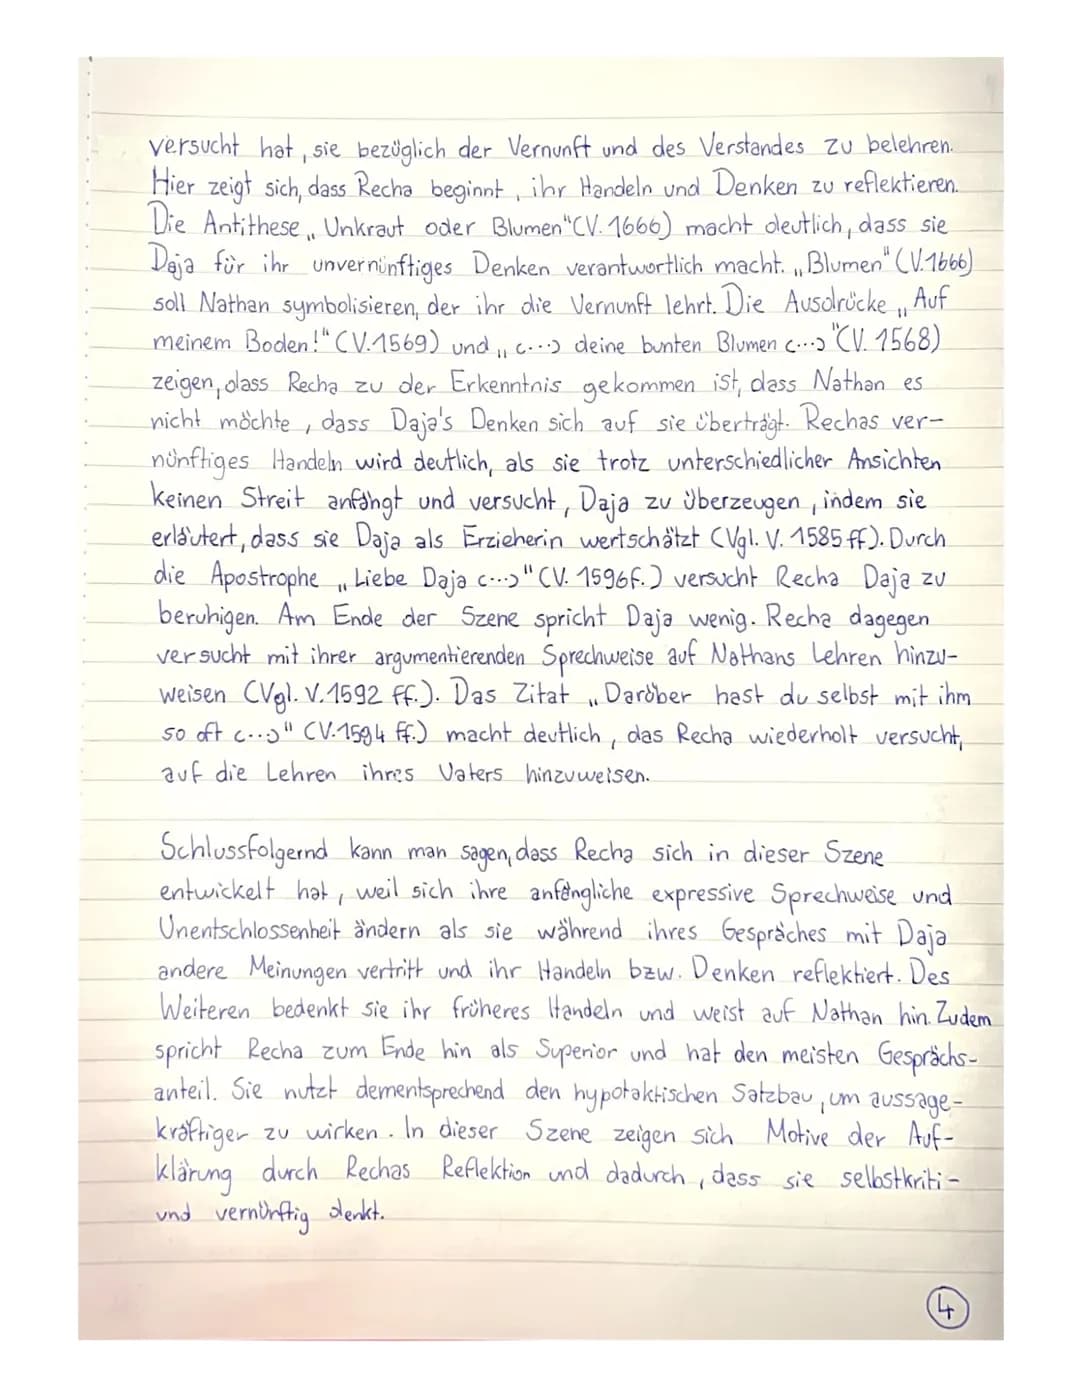 versucht hat, sie bezüglich der Vernunft und des Verstandes zu belehren.
Hier zeigt sich, dass Recha beginnt, ihr Handeln und Denken zu reflektieren.
Die Antithese „Unkraut oder Blumen" (V. 1666) macht deutlich, dass sie
Daja für ihr unvernünftiges Denken verantwortlich macht. „Blumen" (V.1666)
soll Nathan symbolisieren, der ihr die Vernunft lehrt. Die Ausdrücke „Auf
meinem Boden!" (V.1569) und „(...) deine bunten Blumen (...)" (V. 1568)
zeigen, dass Recha zu der Erkenntnis gekommen ist, dass Nathan es
nicht möchte, dass Daja's Denken sich auf sie überträgt. Rechas ver-
nünftiges Handeln wird deutlich, als sie trotz unterschiedlicher Ansichten
keinen Streit anfängt und versucht, Daja zu überzeugen, indem sie
erläutert, dass sie Daja als Erzieherin wertschätzt (Vgl. V. 1585 ff). Durch
die Apostrophe „Liebe Daja (...)" (V. 1596f.) versucht Recha Daja zu
beruhigen. Am Ende der Szene spricht Daja wenig. Recha dagegen
versucht mit ihrer argumentierenden Sprechweise auf Nathans Lehren hinzu-
weisen (Vgl. V.1592 ff.). Das Zitat „Darüber hast du selbst mit ihm
so oft (...)" (V.1594 ff.) macht deutlich, das Recha wiederholt versucht,
auf die Lehren ihres Vaters hinzuweisen.
Schlussfolgernd kann man sagen, dass Recha sich in dieser Szene
entwickelt hat, weil sich ihre anfängliche expressive Sprechweise und
Unentschlossenheit ändern als sie während ihres Gespräches mit Daja
andere Meinungen vertritt und ihr Handeln bzw. Denken reflektiert. Des
Weiteren bedenkt sie ihr früheres Handeln und weist auf Nathan hin. Zudem
spricht Recha zum Ende hin als Superior und hat den meisten Gesprächs-
anteil. Sie nutzt dementsprechend den hypotaktischen Satzbau, um aussage-
kräftiger zu wirken. In dieser Szene zeigen sich Motive der Auf-
klärung durch Rechas Reflektion und dadurch, dass sie selbstkriti-
und vernünftig denkt.
4